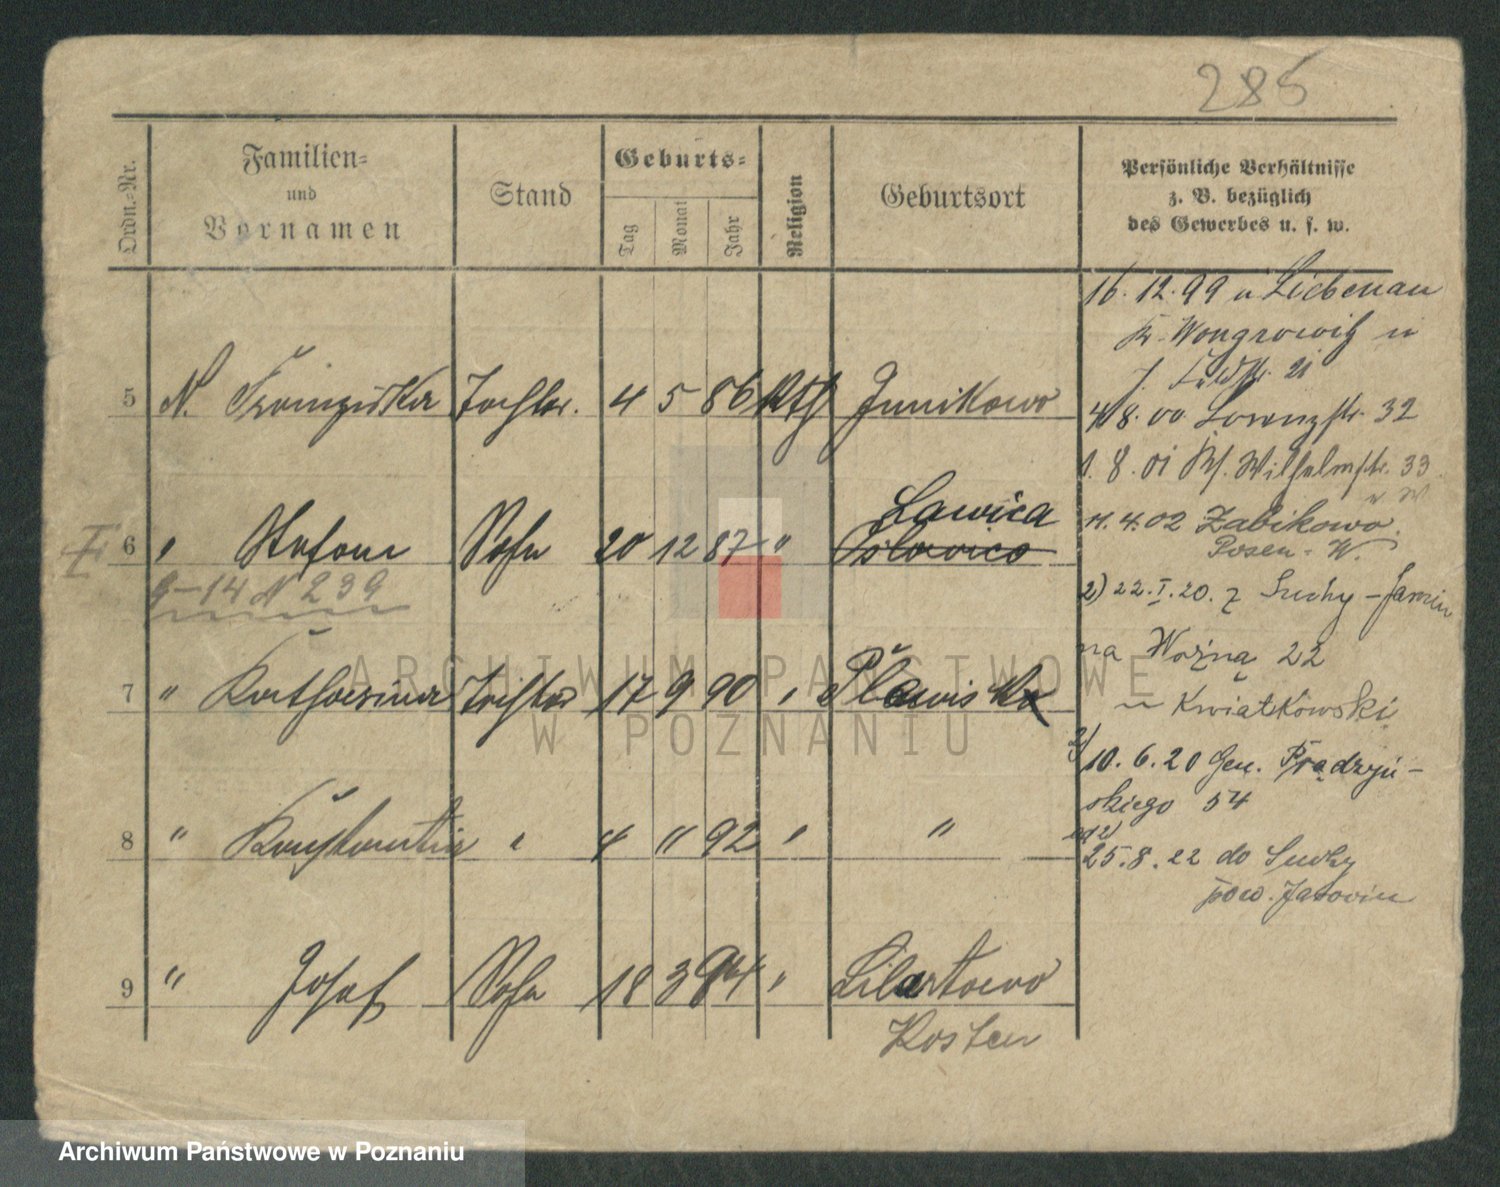 285
Ordn.-Nr.
Familien-
und
Vornamen
Stand
Geburts-
Tag
Monat
Jahr
Religion
Geburtsort
Persönliche Verhältnisse
z. B. bezüglich
des Gewerbes u. s. w.
16.12.99 n Liebenau
Kr. Wongrowitz
5 N. Franziska Tochter. 4 5 86 Kth Junikowo
4/8.00 Lorenzstr. 32
1.8.01 Wilhelmstr. 33
Ławica
6 " Stefan Sohn 20 12 87 "
11.4.02 Zabikowo
Posen-W.
9-14 N 239
2) 22.I.20. z Suchy
na Woźną 22
7 " Katharina Tochter 17 9 90 " Plewiska
u Kwiatkowski
10.6.20 Gen. Prądzyń-
skiego 54
8 " Konstantin " 4 " 92 " "
25.8.22 do Suchy
pow. Jarocin
9 " Josef Sohn 18 3 94 "
Kosten
ARCHIWUM PAŃSTWOWE
W POZNANIU
Archiwum Państwowe w Poznaniu